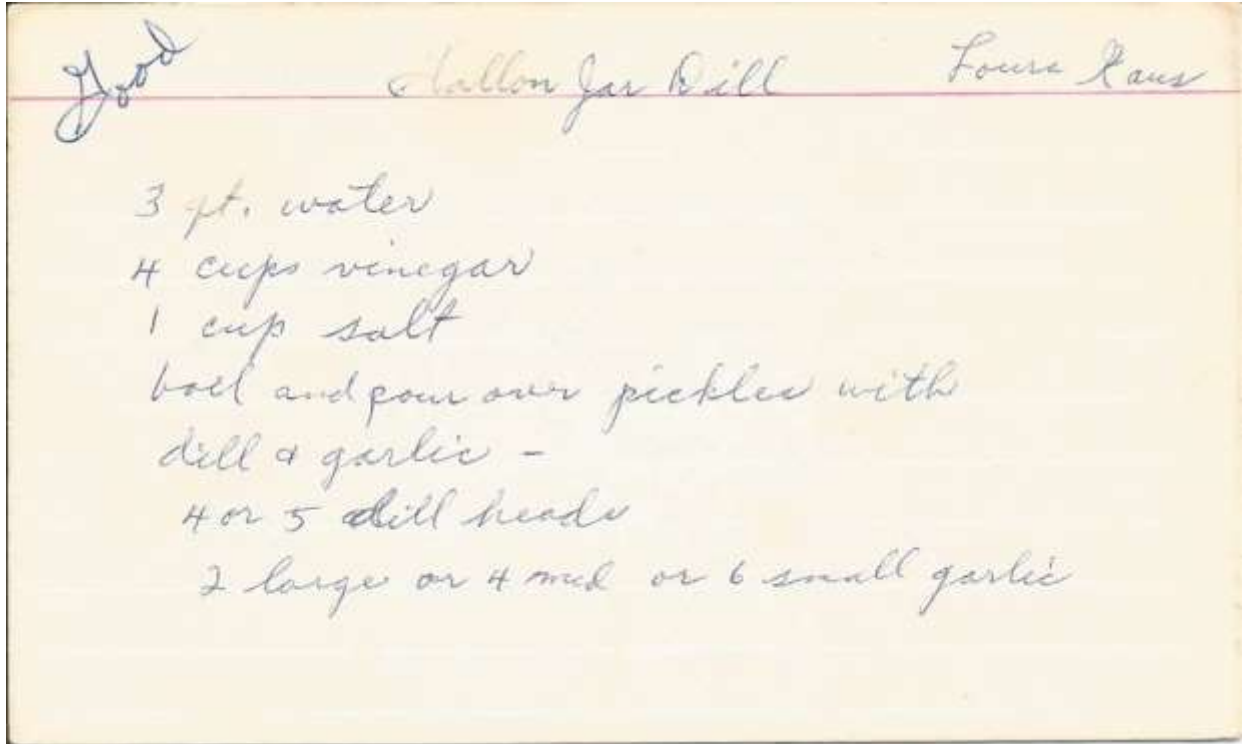 Good
Gallon Jar Dill
3 water
4 cups vinegar
1 cup salt
boil and pour over pickles with
dill & garlic -
4 or 5 dill heads
2 large or 4 med or 6 small garlic